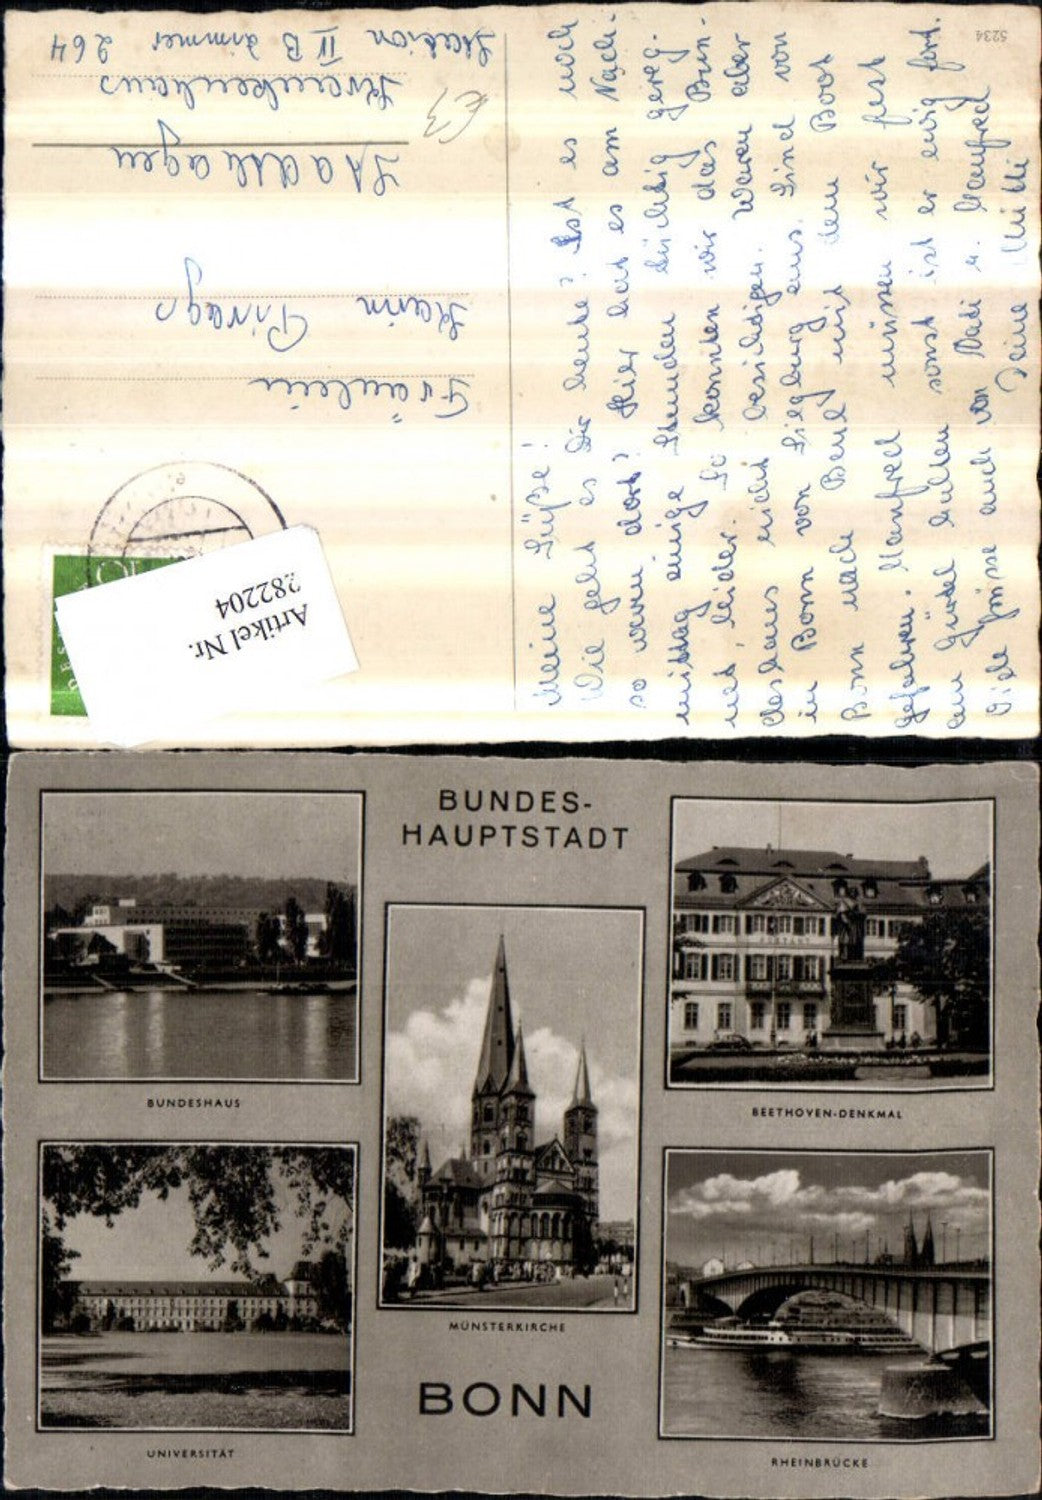 Meine Süße!
Wie geht es Dir heute? Ist es noch
so warm dort? Hier hat es am Nach-
mittag einige Stunden tüchtig gereg-
net, leider. So konnten wir das Bun-
deshaus nicht besichtigen. Waren aber
in Bonn von Siegburg aus. Sind von
Bonn nach Beuel mit dem Boot
gefahren. Manfred müssen wir fest
am Gürtel halten sonst ist er ewig fort.
Viele Grüsse auch von Vati u. Manfred
Deine Mutti
5234
€3
Fräulein
Karin Pirags
Stadthagen
Krankenhaus
Station II B Zimmer 264
10
Artikel Nr.
282204
BUNDES-
HAUPTSTADT
BUNDESHAUS
BEETHOVEN-DENKMAL
MÜNSTERKIRCHE
UNIVERSITÄT
BONN
RHEINBRÜCKE